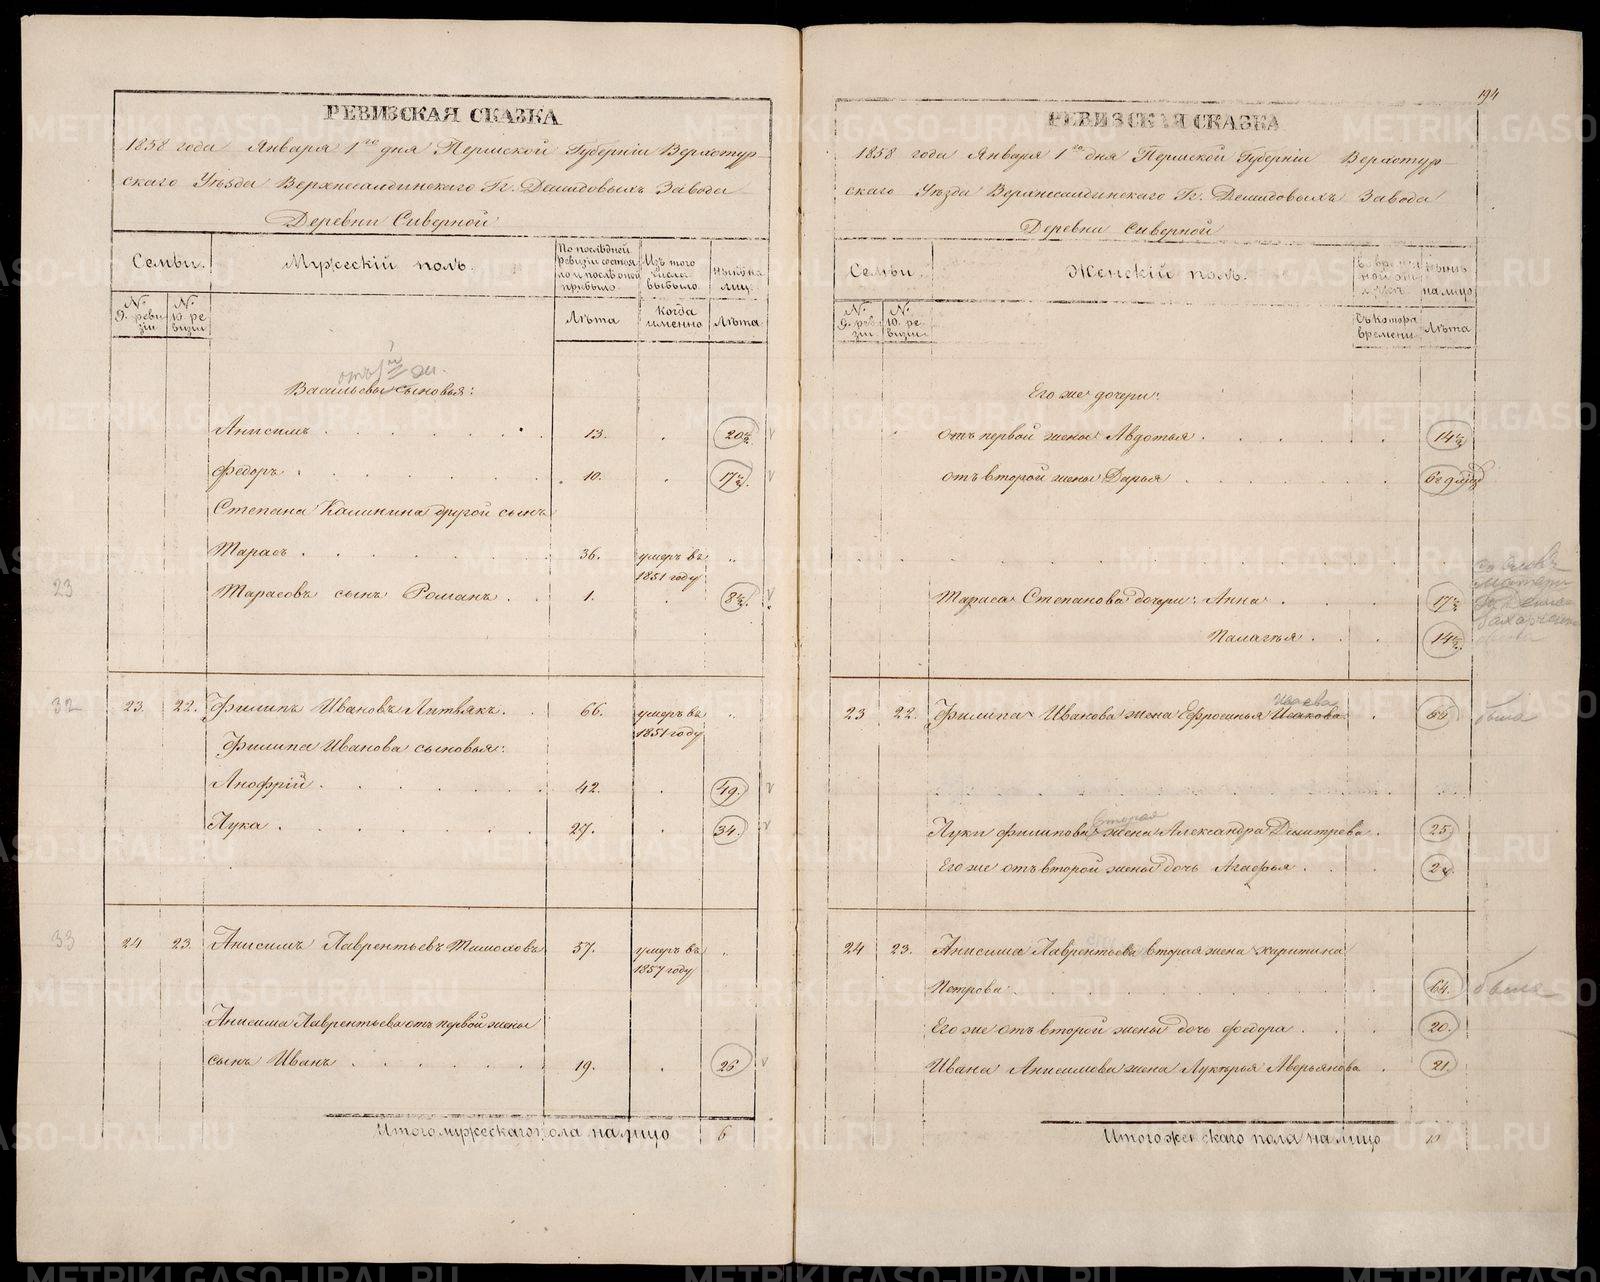 РЕВИЗСКАЯ СКАЗКА
1858 года Января 1го дня Пермской Губерніи Верхотур-
скаго Уѣзда Верхнесалдинскаго Гг. Демидовыхъ Завода
Деревни Сиверной
Семьи.
Мужескій полъ.
По послѣдней ревизіи состояло и послѣ оной прибыло.
Изъ того числа выбыло
нынѣ на лицо
№ 9. ревизіи
№ 10. ревизіи
Лѣта
когда именно
Лѣта
отъ 1й
Васильевы сыновья:
Анисимъ . 13. . 20
Федоръ . 10. . 17
Степана Калинина другой сынъ
Тарасъ . 36. умеръ въ 1851 году „
23
Тарасовъ сынъ Романъ . 1. . 8
32
23. 22. Филипъ Ивановъ Литвякъ . 66. умеръ въ 1851 году „
Филипа Иванова сыновья:
Анофрій . 42. . 49.
Лука . 27. . 34.
33
24 23. Анисимъ Лаврентьевъ 57. умеръ въ 1857 году „
Анисима Лаврентьева отъ первой жены
сынъ Иванъ . 19. . 26
Итого мужескаго пола на лицо 6
194
РЕВИЗСКАЯ СКАЗКА
1858 года Января 1го дня Пермской Губерніи Верхотур-
скаго Уѣзда Верхнесалдинскаго Гг. Демидовыхъ Завода
Деревни Сиверной
Семьи.
Женскій полъ.
нынѣ на лицо
№ 9. ревизіи
№ 10. ревизіи
Съ котора времени
Лѣта
Его же дочери:
отъ первой жены Авдотья . 14
отъ второй жены Дарья .
Тараса Степанова дочери: Анна . 17
матери
Палагея . 14
23 22. Филипа Иванова жена Ефросинья Исакова . 64
Луки Филипова жена Александра Димитрева . 25
вторая
Его же отъ второй жены дочь Агафья . 2
24 23. Анисима Лаврентьева вторая жена Харитина
Петрова . 64.
Его же отъ второй жены дочь Федора . 20.
Ивана Анисимова жена Лукерья Аверьянова . 21
Итого женскаго пола на лицо
METRIKI.GASO-URAL.RU